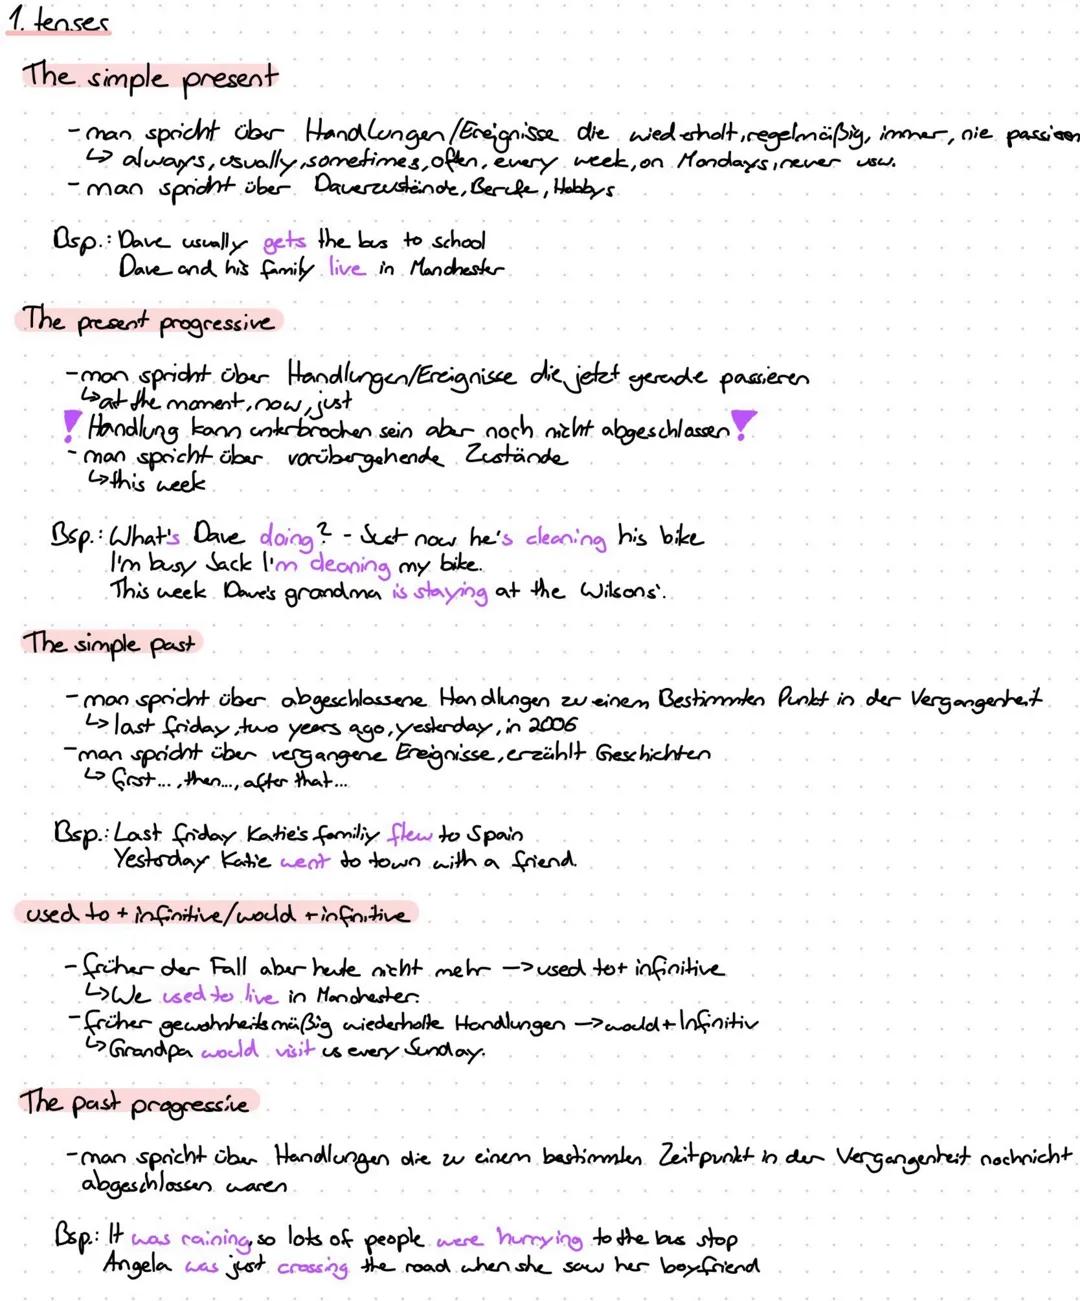 1. tenses
The simple present
- man spricht über Handlungen/Ereignisse die wiederholt, regelmäßig, immer, nie passieren
↳ always, usually, sometimes, often, every week, on Mondays, never usw.
- man spricht über Dauerzustände, Berufe, Hobbys
Bsp.: Dave usually gets the bus to school
Dave and his family live in Manchester
The present progressive
- man spricht über Handlungen/Ereignisse die jetzt gerade passieren
↳ at the moment, now, just
! Handlung kann unterbrochen sein aber noch nicht abgeschlossen !
- man spricht über vorübergehende Zustände
↳ this week
Bsp.: What's Dave doing? - Just now he's cleaning his bike
I'm busy Jack I'm cleaning my bike.
This week Dave's grandma is staying at the Wilsons'.
The simple past
- man spricht über abgeschlossene Handlungen zu einem Bestimmten Punkt in der Vergangenheit
↳ last friday, two years ago, yesterday, in 2006
- man spricht über vergangene Ereignisse, erzählt Geschichten
↳ first..., then..., after that...
Bsp.: Last friday Katie's familiy flew to Spain
Yesterday Katie went to town with a friend.
used to + infinitive/would + infinitive
- früher der Fall aber heute nicht mehr -> used to + infinitive
↳ We used to live in Manchester.
- früher gewohnheitsmäßig wiederholte Handlungen -> would + Infinitiv
↳ Grandpa would visit us every Sunday.
The past progressive
- man spricht über Handlungen die zu einem bestimmten Zeitpunkt in der Vergangenheit nochnicht
abgeschlossen waren
Bsp.: It was raining, so lots of people were hurrying to the bus stop
Angela was just crossing the road when she saw her boyfriend